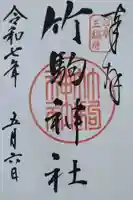 奉拝
竹駒神社
令和七年
五月六日